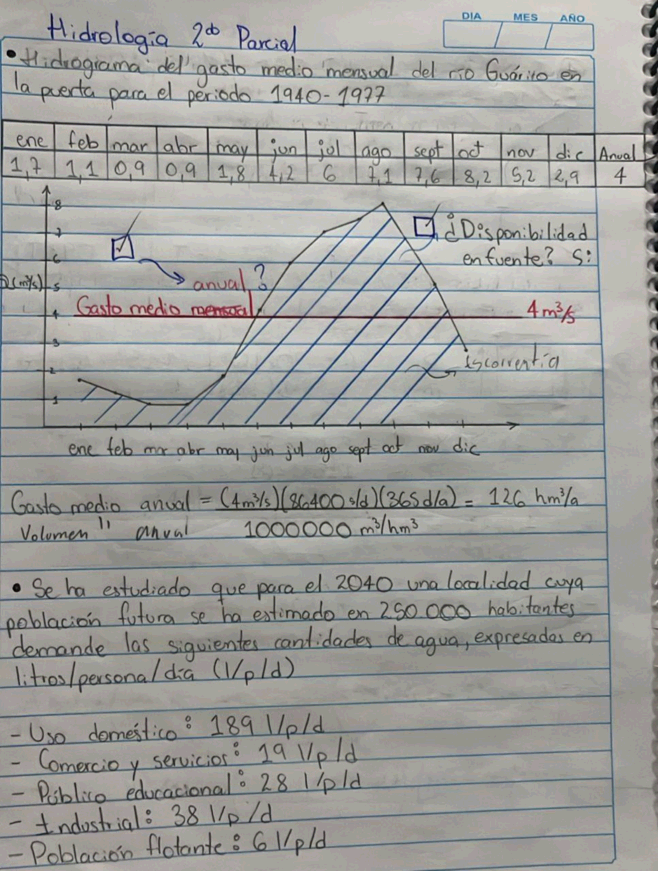 DIA MES AÑO
Hidrología 2do Parcial
• Hidrograma del gasto medio mensual del río Guárico en
la puerta para el período 1940-1977
ene feb mar abr may jun jul ago sept oct nov dic Anual
1,7 1,1 0,9 0,9 1,8 4,2 6 7,1 7,6 8,2 5,2 2,9 4
8
7
6
5
4
3
2
1
Q(m³/s)
¿Disponibilidad
en fuente? Si
anual?
Gasto medio mensual
4 m³/s
Escorrentía
ene feb mar abr may jun jul ago sept oct nov dic
Gasto medio anual = (4m³/s)(86400 s/d)(365d/a) = 126 hm³/a
Volumen " anual 1000000 m³/hm³
• Se ha estudiado que para el 2040 una localidad cuya
población futura se ha estimado en 250 000 habitantes
demande las siguientes cantidades de agua, expresadas en
litros/persona/día (l/p/d)
- Uso doméstico: 189 l/p/d
- Comercio y servicios: 19 l/p/d
- Público educacional: 28 l/p/d
- Industrial: 38 l/p/d
- Población flotante: 6 l/p/d